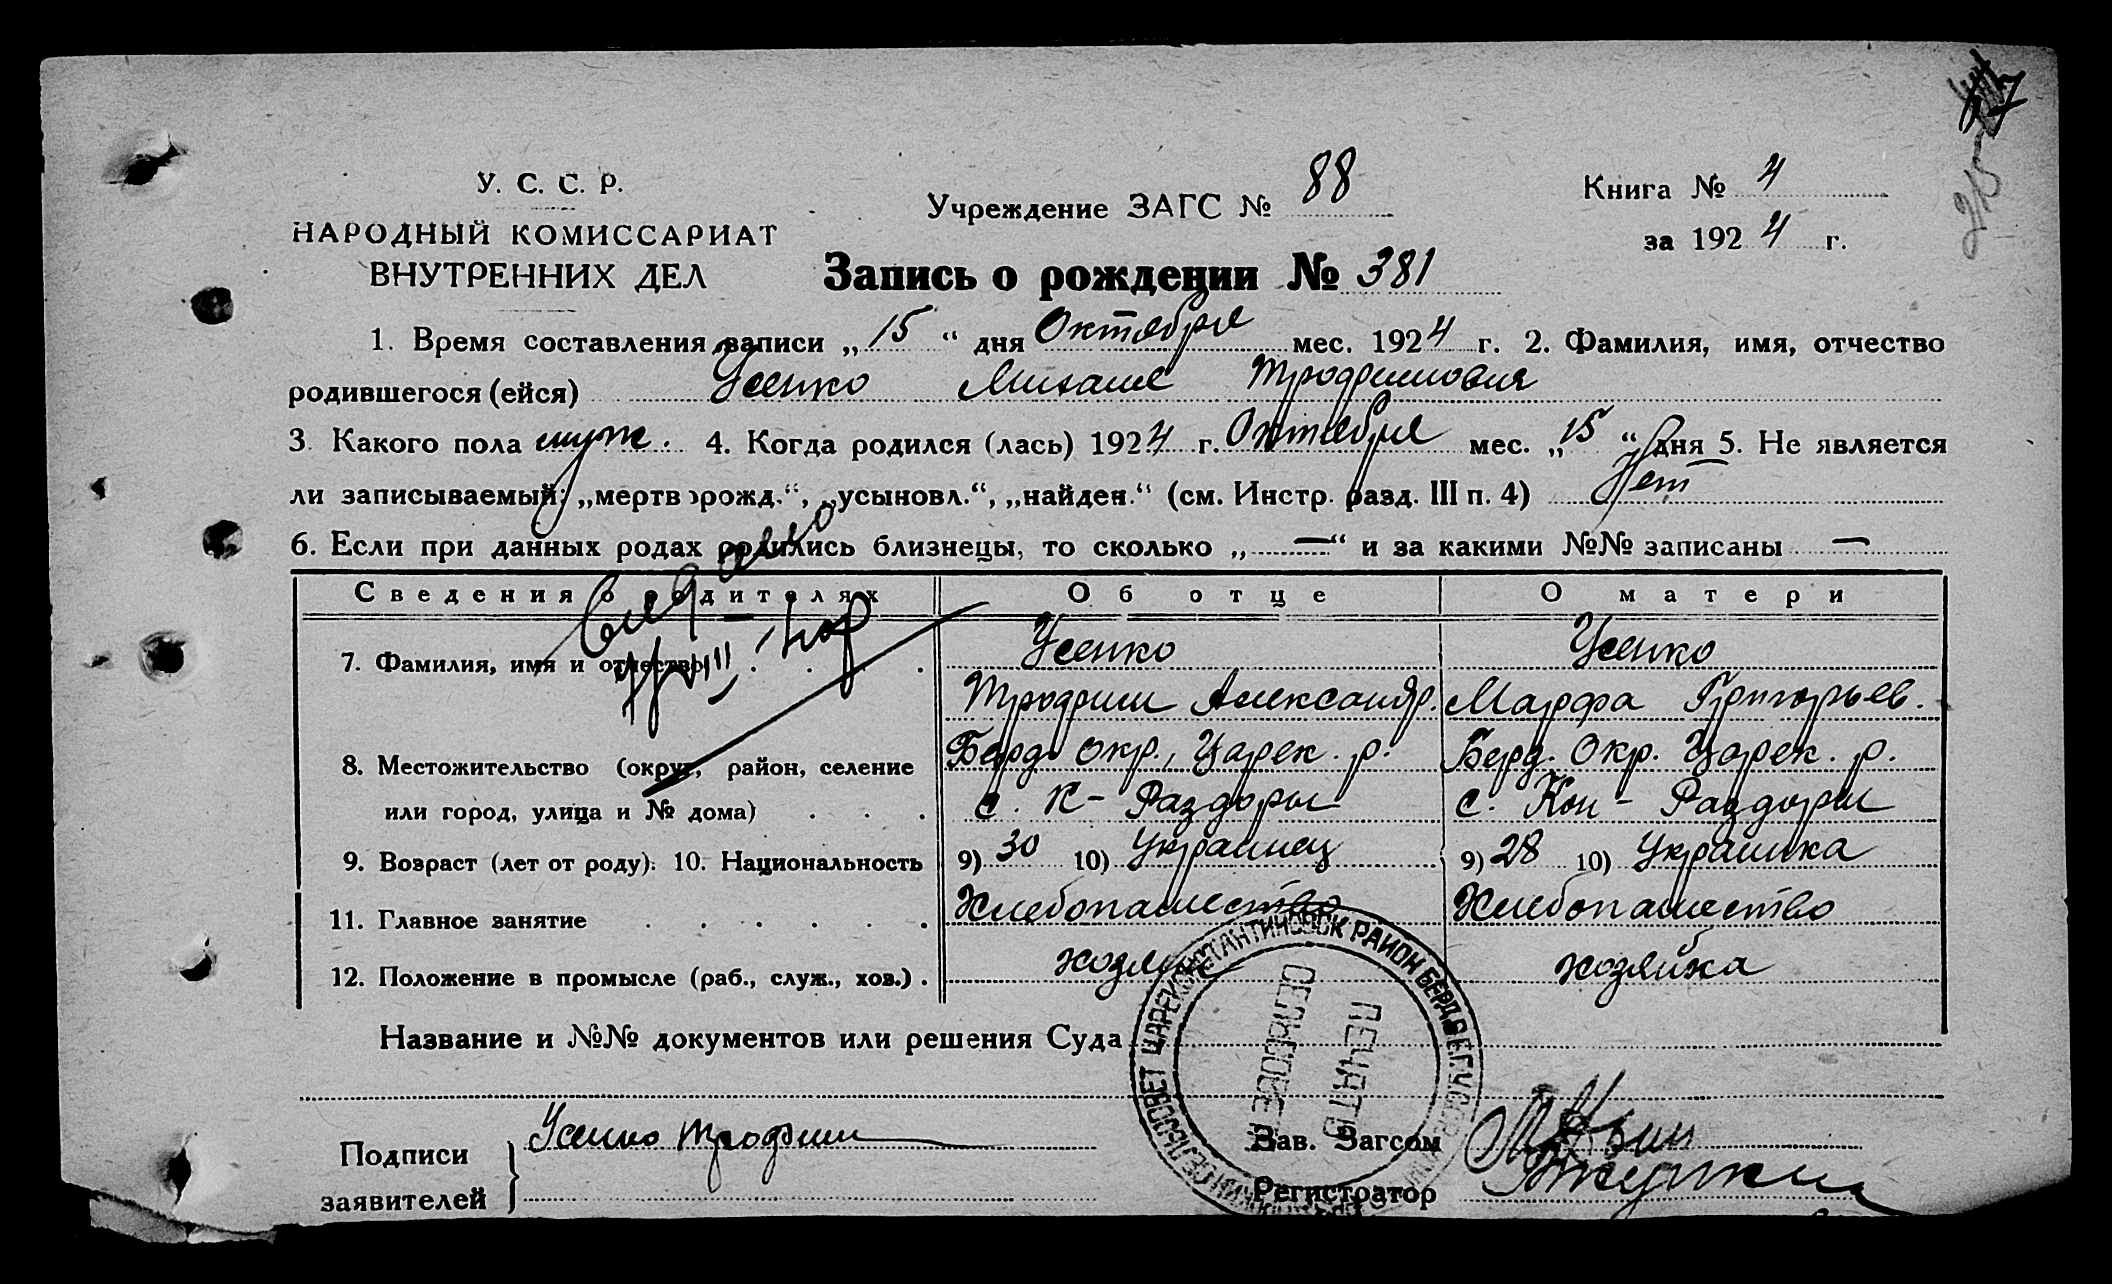 47
215
У. С. С. Р.
НАРОДНЫЙ КОМИССАРИАТ
ВНУТРЕННИХ ДЕЛ
Учреждение ЗАГС № 88
Книга № 4
за 1924 г.
Запись о рождении № 381
1. Время составления записи „15“ дня Октября мес. 1924 г. 2. Фамилия, имя, отчество
родившегося (ейся) Усенко Михаил Трофимович
3. Какого пола муж. 4. Когда родился (лась) 1924 г. Октября мес. „15“ дня 5. Не является
ли записываемый: „мертворожд.“, „усыновл.“, „найден.“ (см. Инстр. разд. III п. 4) Нет
6. Если при данных родах родились близнецы, то сколько „—“ и за какими №№ записаны —
Сведения о родителях Об отце О матери
7. Фамилия, имя и отчество Усенко Усенко
Трофим Александр. Марфа Григорьев.
8. Местожительство (округ, район, селение Берд. окр., Царек. р. Берд. Окр. Царек. р.
или город, улица и № дома) с. К-Раздоры с. Кон-Раздоры
9. Возраст (лет от роду). 10. Национальность 9) 30 10) Украинец 9) 28 10) Украинка
11. Главное занятие Хлебопашество Хлебопашество
12. Положение в промысле (раб., служ., хоз.) хозяин хозяйка
Название и №№ документов или решения Суда
ЦАРЕКОНСТАНТИНОВСК РАЙОН БЕРД
ПЕЧАТЬ
Подписи
заявителей
Усенко Трофим
Зав. Загсом
Регистратор